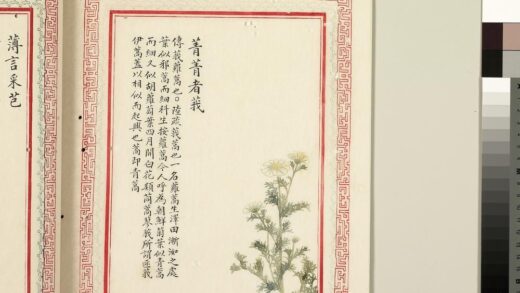 菁菁者莪
傳莪蘿蒿也○陸疏莪蒿也一名蘿蒿生澤田漸洳之處
葉似邪蒿而細科生按蘿蒿今人呼為朝鮮菊葉似青蒿
而細又似胡蘿蔔葉四月開白花類茼蒿琴莪所謂匪莪
伊蒿蓋以相似而起興也蒿即青蒿
薄言采芑